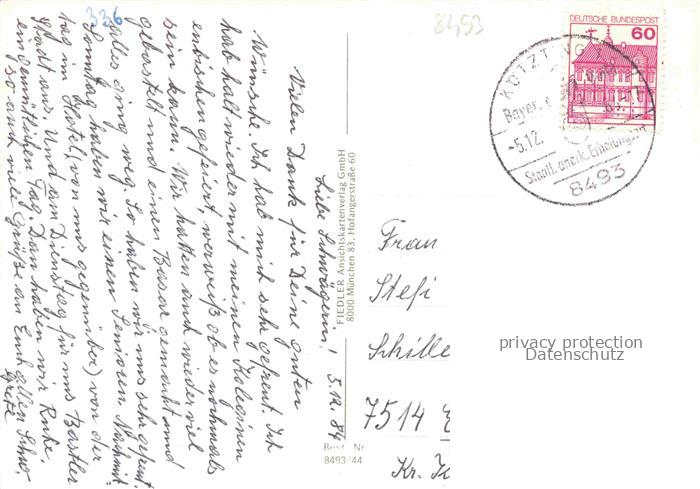 336
8493
DEUTSCHE BUNDESPOST
60
KÖTZTING 1
Bayer.
-5.12.
Staatl. anerk. Erholungsort
8493
Liebe Schwägerin! 3.12.84
Vielen Dank für Deine guten
Wünsche. Ich hab mich sehr gefreut. Ich
hab halt wieder mit meinen Koleginen
entsprechen gefeiert, wer weiß ob es nochmals
sein kann. Wir hatten auch wieder viel
gebastelt und einen Basar gemacht und
alles ging weg. So haben wir uns sehr gefreut.
Sonntag haben wir einen Senioren Nachmit-
tag im Hotel (von uns gegenüber) von der
Stadt aus. Und am Dienstag für uns Bastler
ein gemütlichen Tag. Dan haben wir Ruhe.
So auch viele Grüße an Euch allen Schw.
Grete
FIEDLER Ansichtskartenverlag GmbH
8000 München 83, Hofangerstraße 60
Best. Nr
8493/44
Frau
Stefi
Schille
7514
Kr.
privacy protection
Datenschutz